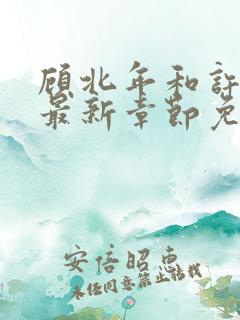 顾北年和许
最新章节免
安倍昭惠
未经同意禁止转载